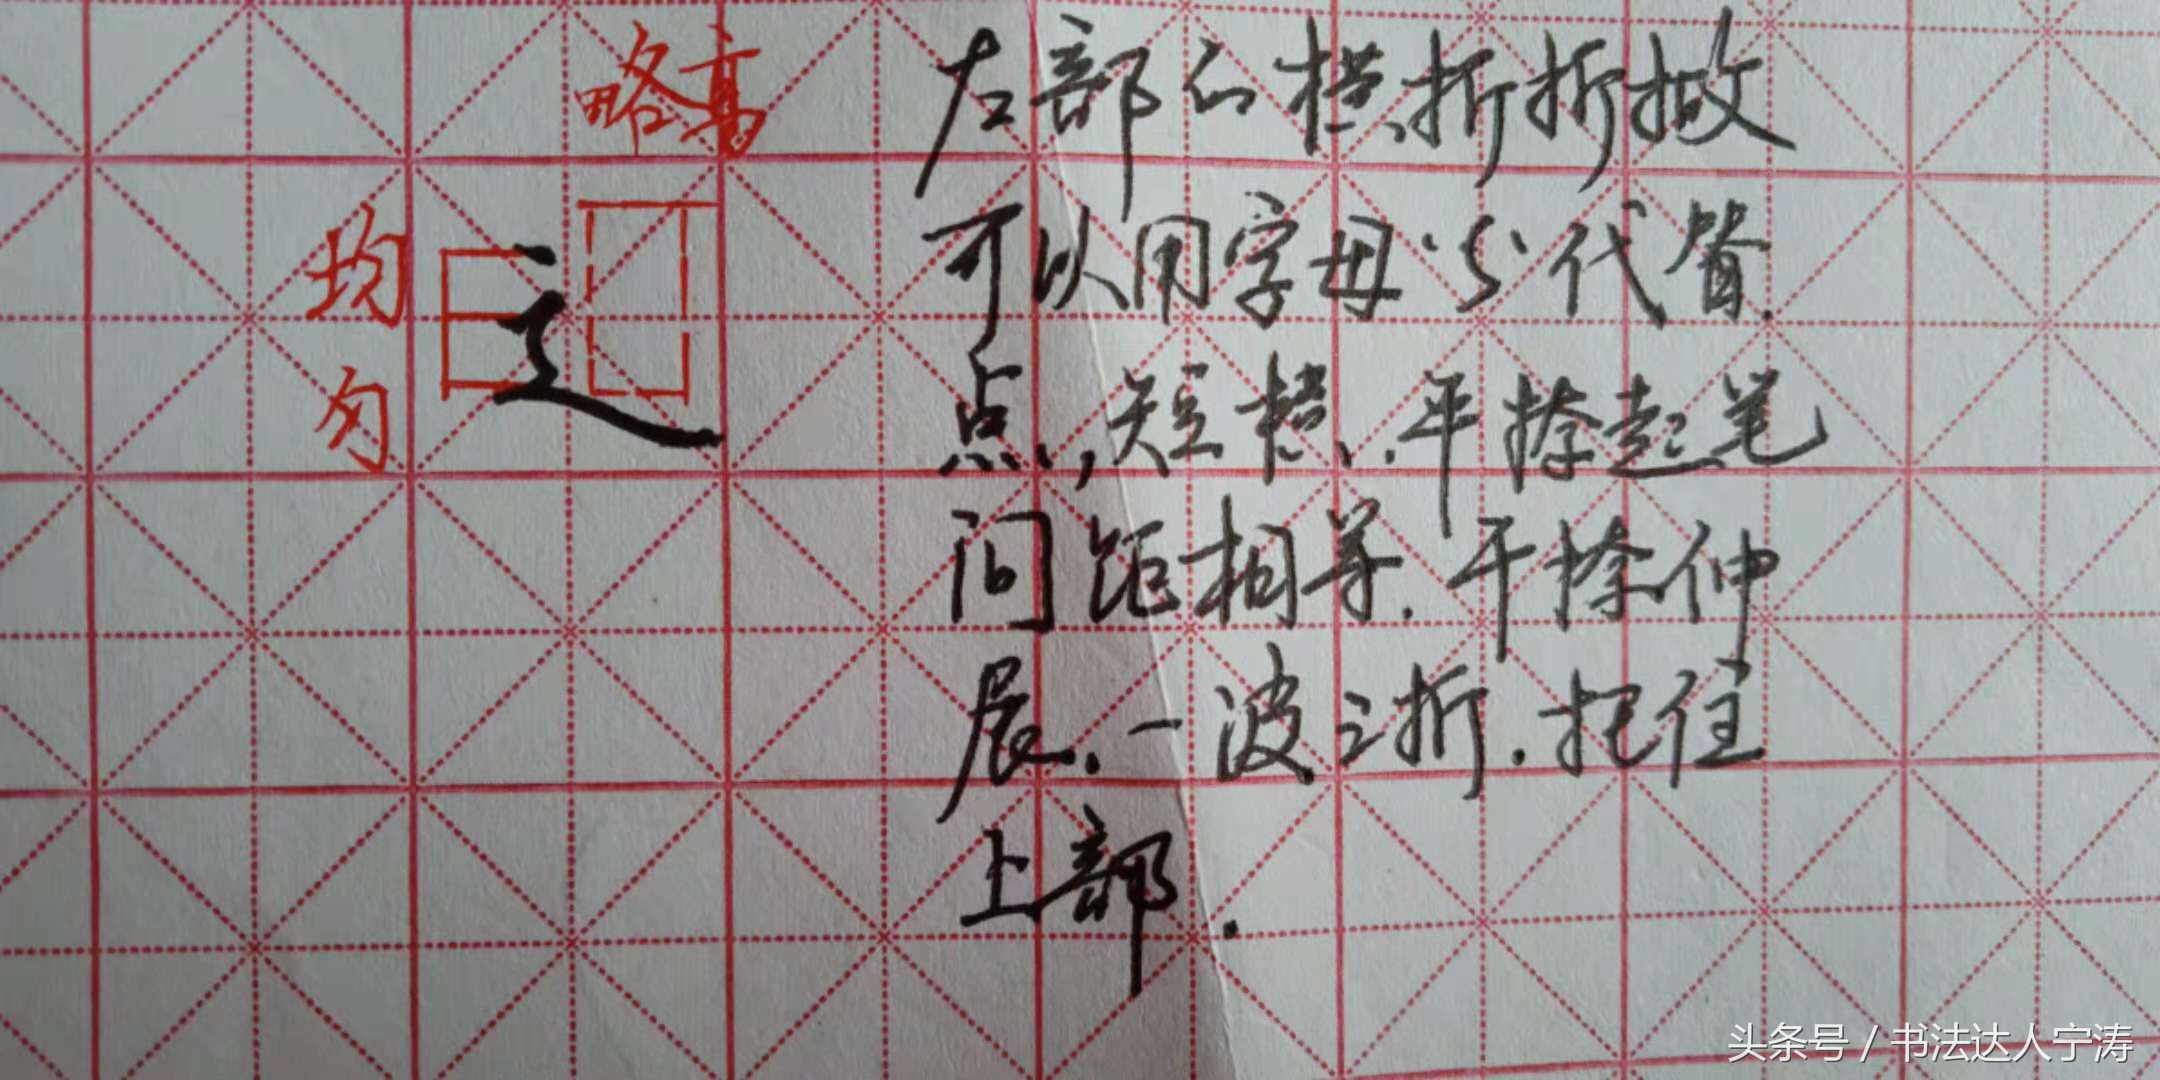 略高
均
匀
左部的横折折撇
可以用字母“S”代替.
点,短横.平捺起笔
间距相等.平捺伸
展.一波三折.托住
上部.
头条号 / 书法达人宁涛